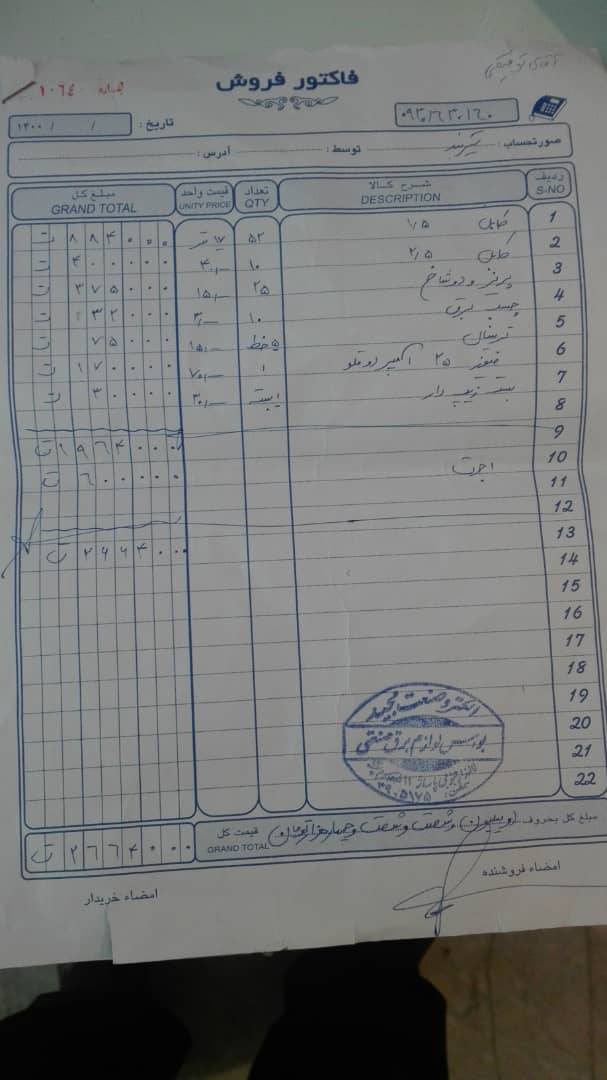 فاکتور فروش
شماره ۱۰۶۴
تاریخ : / / ۱۴۰۰
صورتحساب : توسط : آدرس :
ردیف S-NO شرح کالا DESCRIPTION تعداد QTY قیمت واحد UNITY PRICE مبلغ کل GRAND TOTAL
1 کابل ۱/۵ ۵۲ ۱۷ ۸۸۴۰۰۰ ت
2 کابل ۲/۵ ۱۰ ۴۰ ۴۰۰۰۰۰ ت
3 پریز و دوشاخ ۲۵ ۱۵ ۳۷۵۰۰۰ ت
4 چسب برق ۱۰ ۳
5 ترمینال ۵ خط ۱۵ ۷۵۰۰۰ ت
6 فیوز ۲۵ آمپر دوقلو ۱ ۷۰ ت
7 بست زیپ دار ۱ بسته ۳۰ ۳۰۰۰۰ ت
8
9 ۱۹۶۴۰۰۰ ت
10 اجرت ۷۰۰۰۰۰ ت
11
12
13 ۲۶۶۴۰۰۰ ت
14
15
16
17
18
19
20
21
22
الکترو صنعت مجید
بورس لوازم برق صنعتی
۳۹۰۵۱۷۵
مبلغ کل بحروف : دو میلیون و ششصد و شصت و چهار هزار تومان قیمت کل GRAND TOTAL ۲۶۶۴۰۰۰ ت
امضاء فروشنده امضاء خریدار